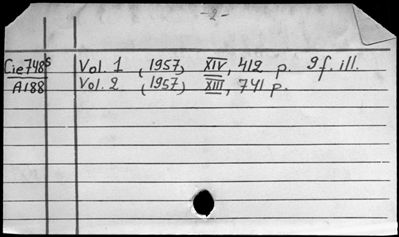 -2-
Cie 748s Vol. 1 (1957) XIV, 412 p. 9 f. ill.
A188 Vol. 2 (1957) XIII, 741 p.